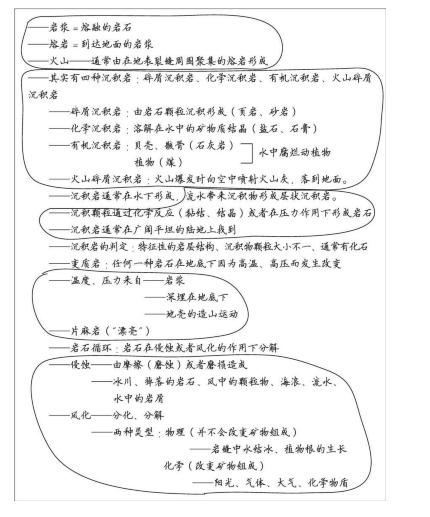 ——岩浆=熔融的岩石
——熔岩=到达地面的岩浆
——火山——通常由在地表裂缝周围聚集的熔岩形成
——其实有四种沉积岩:碎质沉积岩、化学沉积岩、有机沉积岩、火山碎质
沉积岩
——碎质沉积岩:由岩石颗粒沉积形成(页岩、砂岩)
——化学沉积岩:溶解在水中的矿物质结晶(盐石、石膏)
——有机沉积岩:贝壳、骸骨(石灰岩) 水中腐烂动植物
植物(煤)
——火山碎质沉积岩:火山爆发时向空中喷射火山灰,落到地面。
——沉积岩通常在水下形成,流水带来沉积物形成层状沉积岩。
——沉积颗粒通过化学反应(黏结、结晶)或者在压力作用下形成岩石
——沉积岩通常在广阔平坦的陆地上找到
——沉积岩的判定:特征性的岩层结构、沉积物颗粒大小不一、通常有化石
——变质岩:任何一种岩石在地底下因为高温、高压而发生改变
——温度、压力来自——岩浆
——深埋在地底下
——地壳的造山运动
——片麻岩("漂亮")
——岩石循环:岩石在侵蚀或者风化的作用下分解
——侵蚀——由摩擦(磨蚀)或者磨损造成
——冰川、掉落的岩石、风中的颗粒物、海浪、流水、
水中的岩屑
——风化——分化、分解
——两种类型:物理(并不会改变矿物组成)
——岩缝中水结冰、植物根的生长
化学(改变矿物组成)
——阳光、气体、大气、化学物质